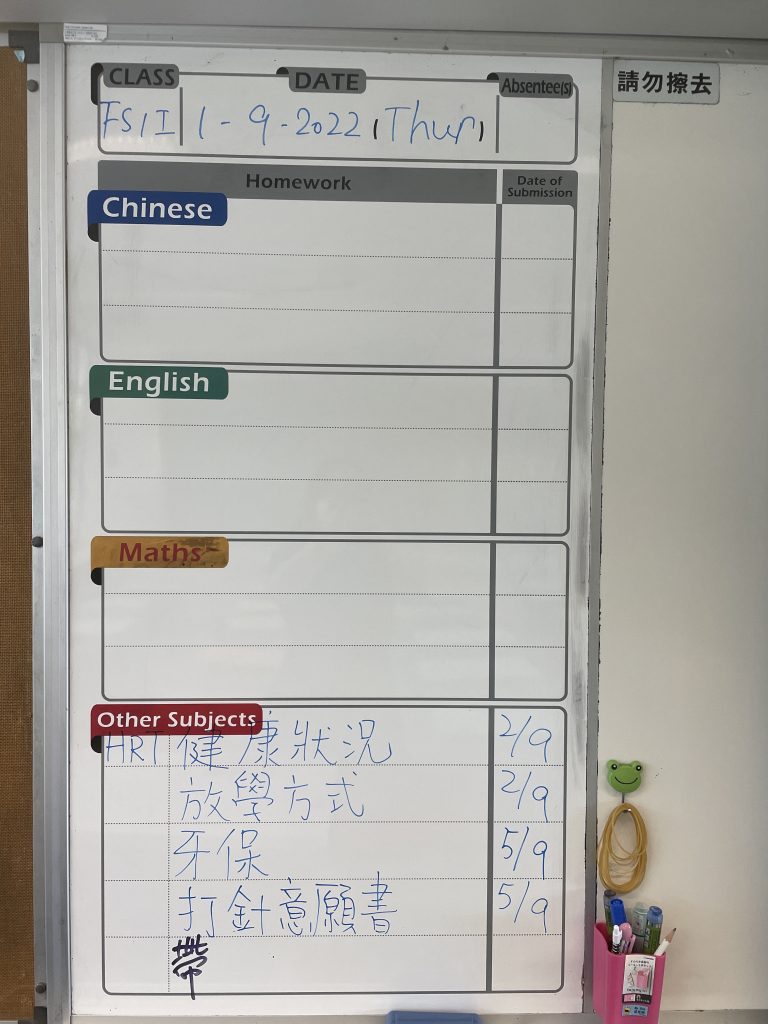 CLASS DATE Absentee(s)
請勿擦去
FS1I 1-9-2022 (Thur)
Homework Date of Submission
Chinese
English
Maths
Other Subjects
HRT 健康狀況 2/9
放學方式 2/9
牙保 5/9
打針意願書 5/9
帶